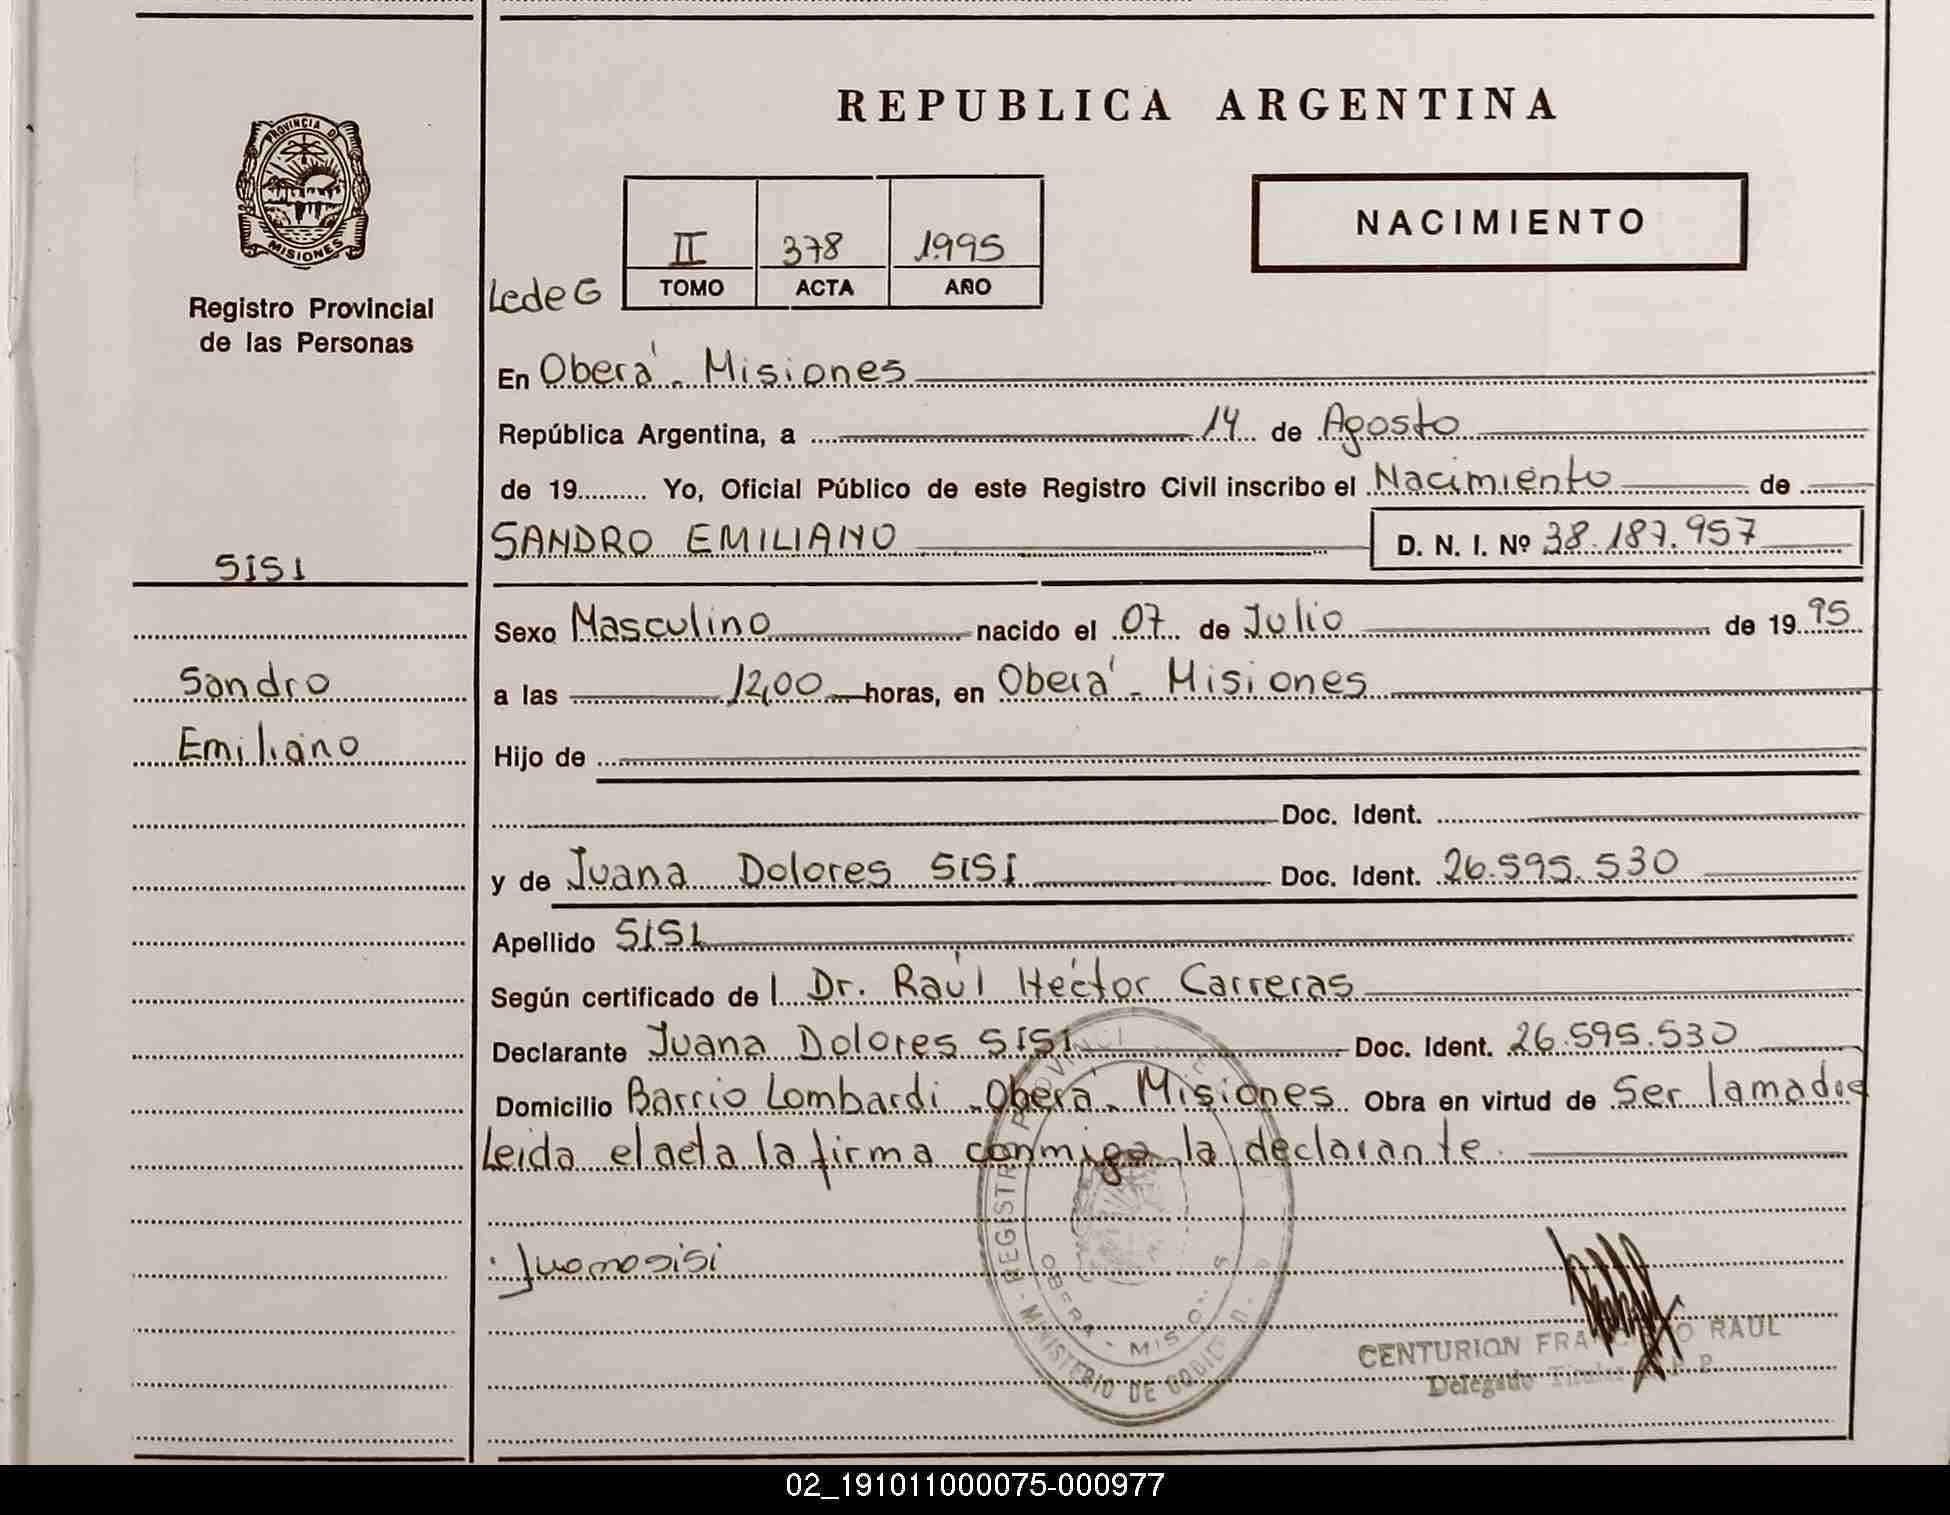 PROVINCIA D
MISIONES
Registro Provincial
de las Personas
REPUBLICA ARGENTINA
NACIMIENTO
II 378 1.995
TOMO ACTA AÑO
Lede G
En Oberá - Misiones
República Argentina, a 14 de Agosto
de 19 Yo, Oficial Público de este Registro Civil inscribo el Nacimiento de
SANDRO EMILIANO D. N. I. Nº 38.187.957
SISI
Sandro
Emiliano
Sexo Masculino nacido el 07 de Julio de 19 95
a las 12,00 horas, en Oberá - Misiones
Hijo de
Doc. Ident.
y de Juana Dolores SISI Doc. Ident. 26.595.530
Apellido SISI
Según certificado de l Dr. Raúl Héctor Carreras
Declarante Juana Dolores SISI Doc. Ident. 26.595.530
Domicilio Barrio Lombardi - Oberá - Misiones Obra en virtud de Ser la madre
Leida el acta la firma conmigo la declarante.
Juana sisi
REGISTR PROVINCI
OBERA - MISIO S
MINISTERIO DE GOBIE
CENTURION FRANCISCO RAUL
Delegado Titular
02_191011000075-000977